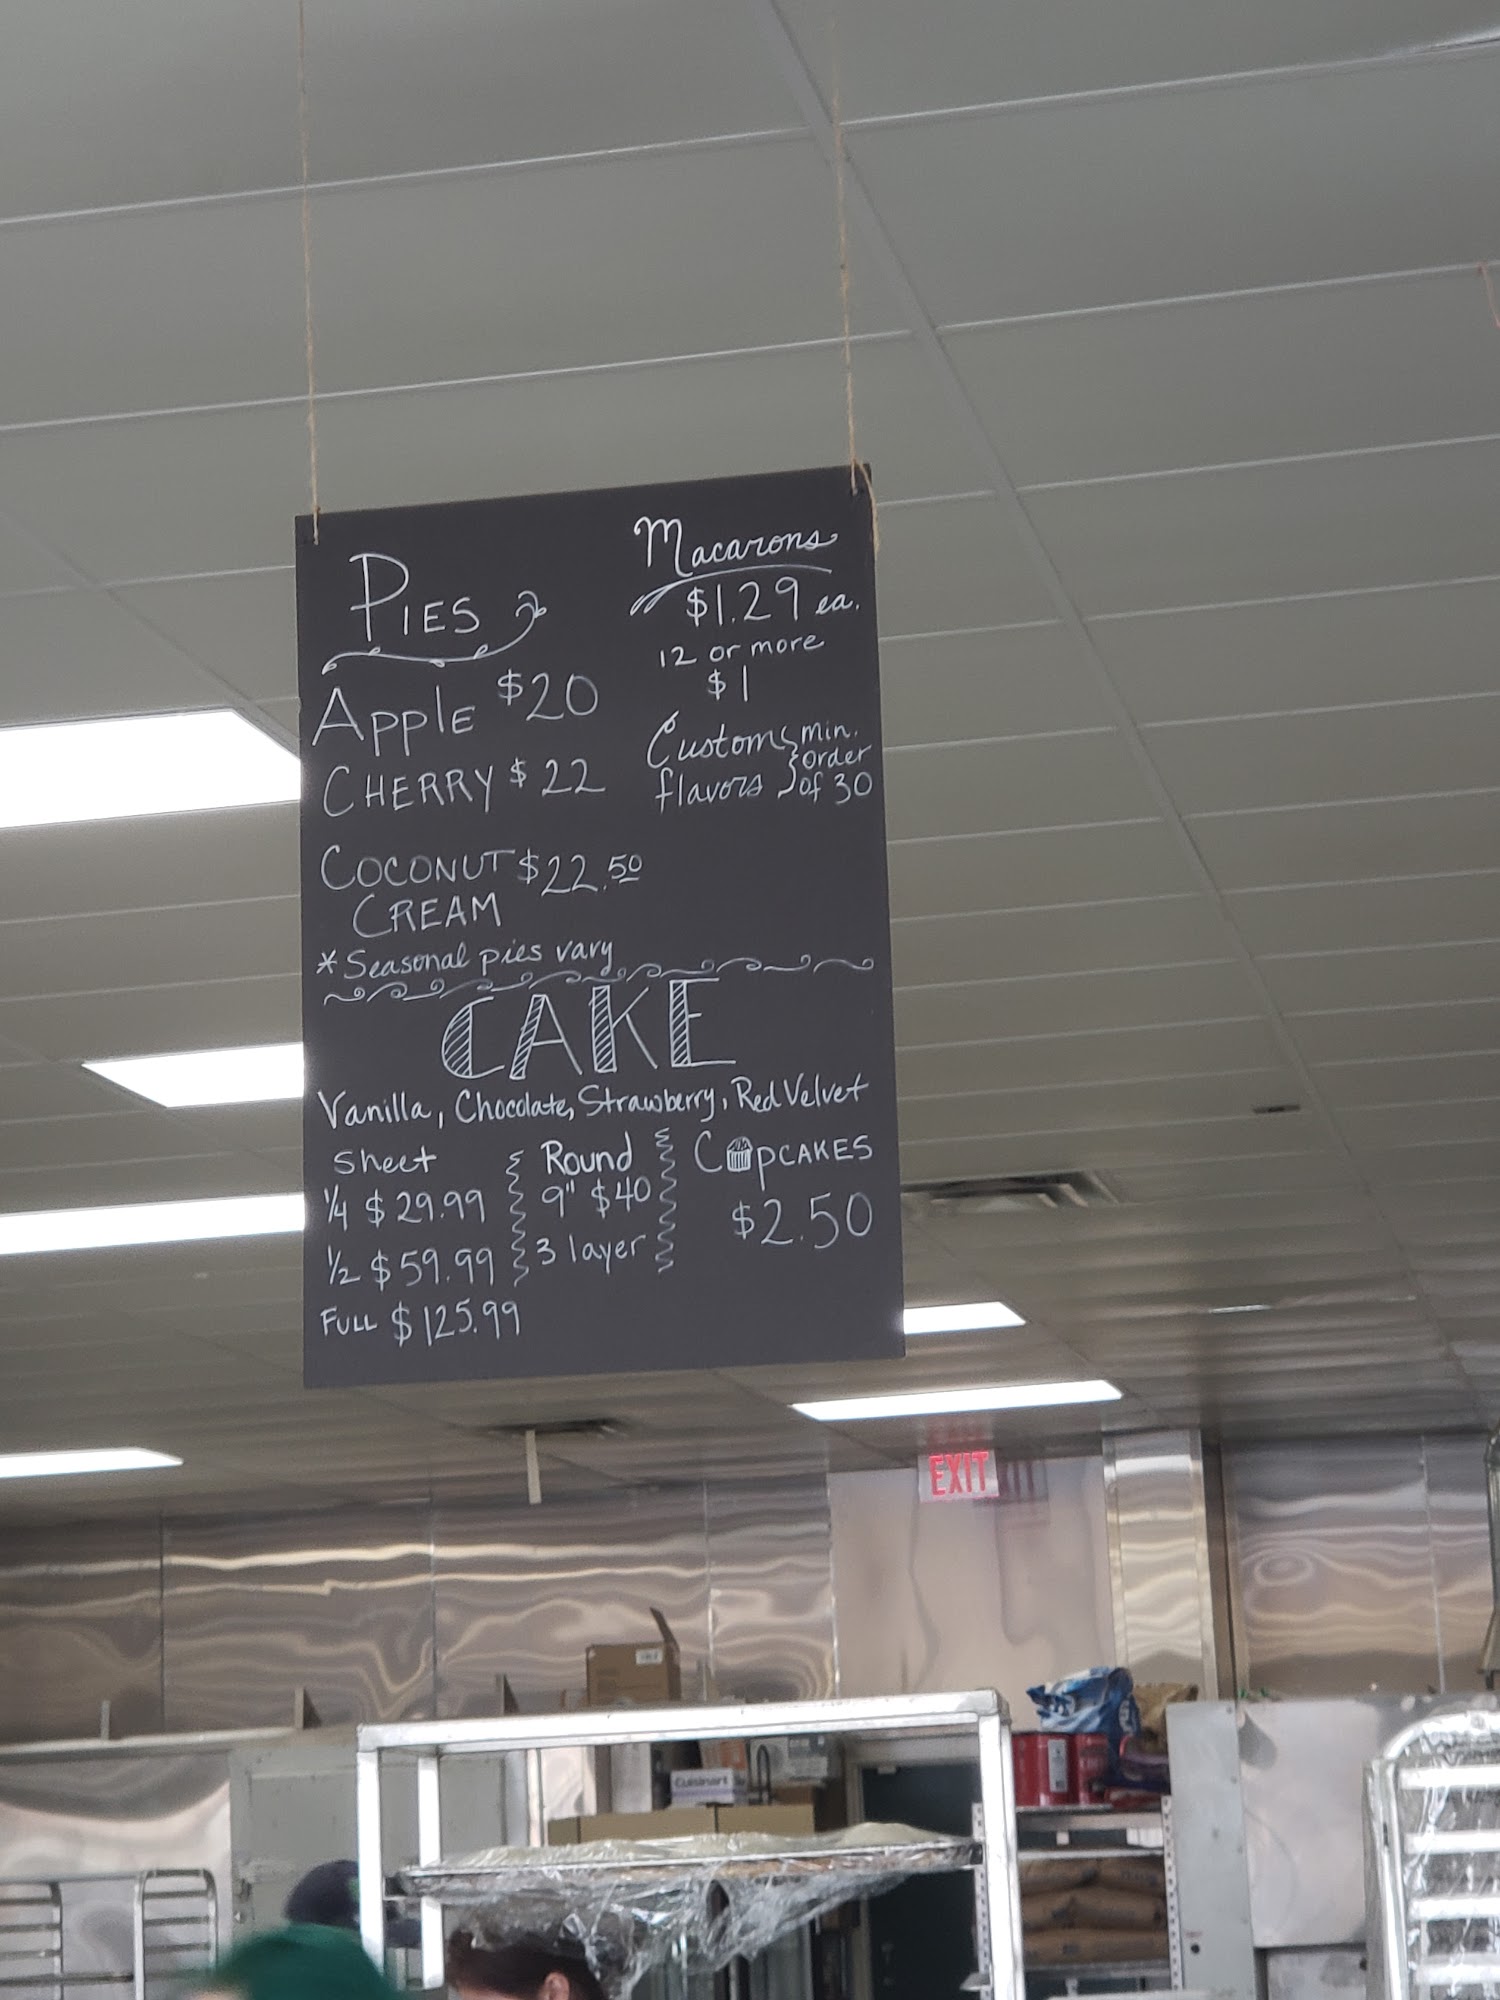 PIES
Apple $20
CHERRY $22
COCONUT $22.50
CREAM
*Seasonal pies vary
Macarons
$1.29 ea.
12 or more
$1
Custom flavors } min. order of 30
CAKE
Vanilla, Chocolate, Strawberry, Red Velvet
Sheet
1/4 $29.99
1/2 $59.99
FULL $125.99
Round
9" $40
3 layer
CUPCAKES
$2.50
EXIT
Cuisinart